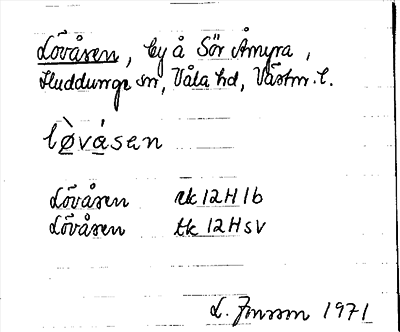 Lövåsen, by å Sör Åmyra,
Huddunge sn, Våla hd, Västm. l.
lø̀vásen
Lövåsen rk 12H 1b
Lövåsen tk 12H SV
L. Jonsson 1971